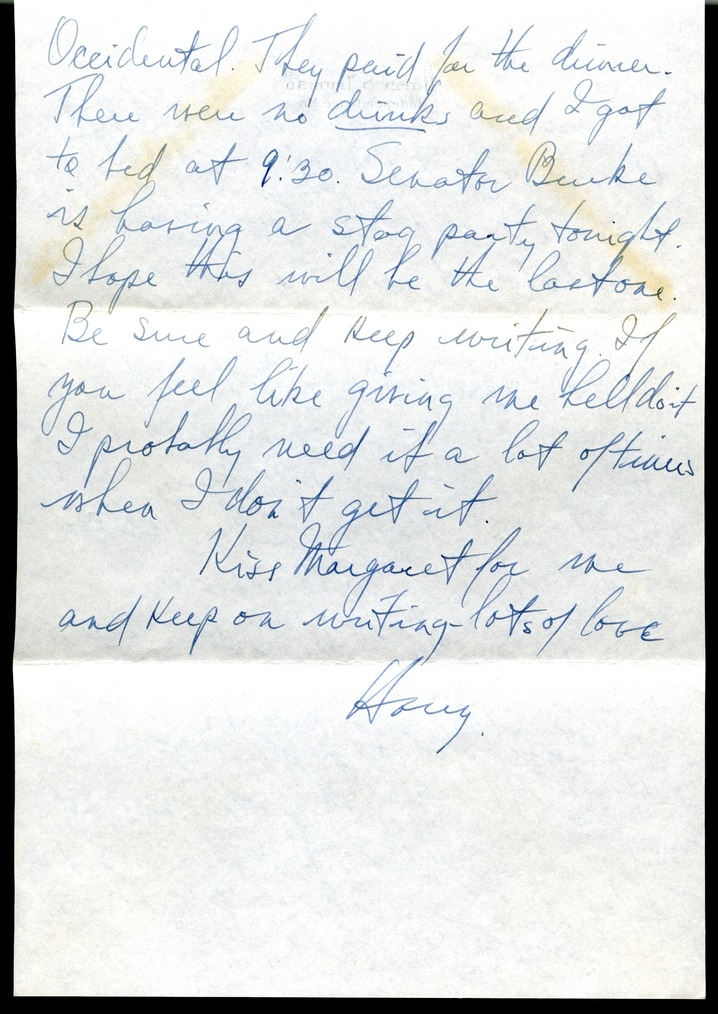 Occidental. They paid for the dinner.
There were no drinks and I got
to bed at 9:30. Senator Burke
is having a stag party tonight.
I hope this will be the last one.
Be sure and keep writing. If
you feel like giving me hell do it
I probably need it a lot of times
when I don't get it.
Kiss Margaret for me
and keep on writing - lots of love
Harry.